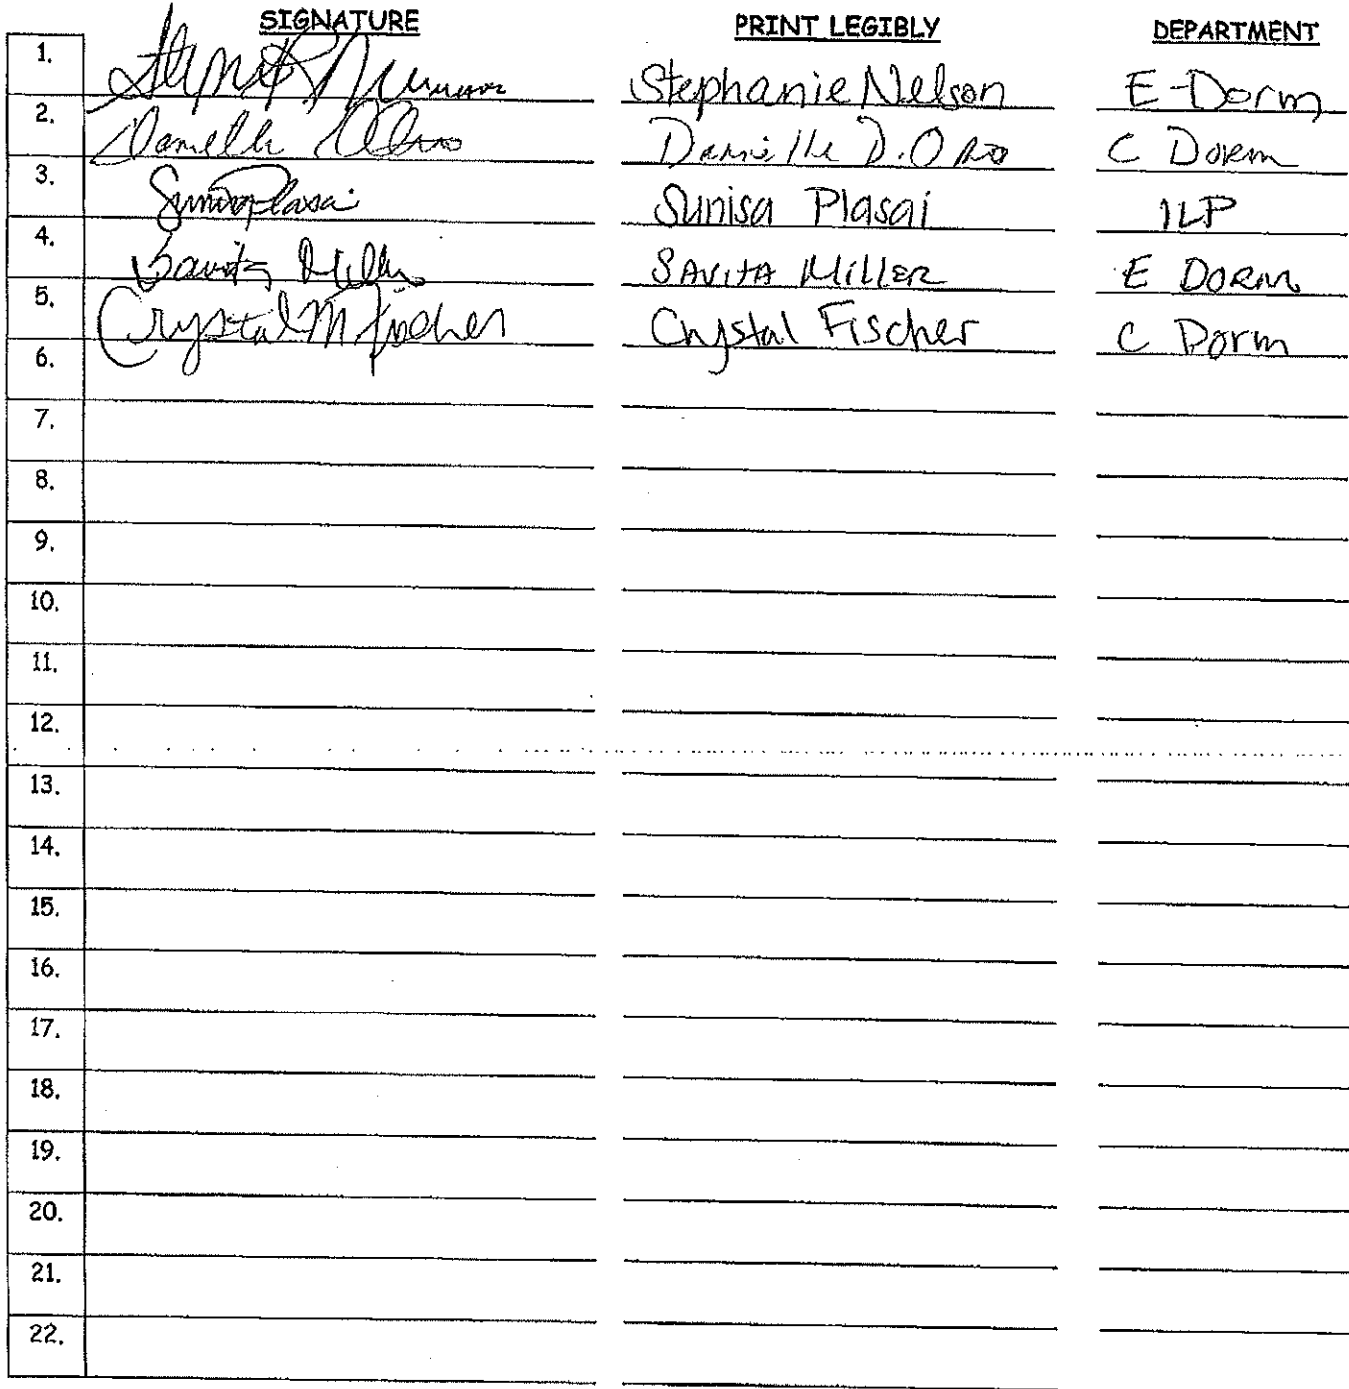 SIGNATURE PRINT LEGIBLY DEPARTMENT
1. Stephanie Nelson E-Dorm
2. Danielle D. Oro C Dorm
3. Sunisa Plasai Sunisa Plasai ILP
4. Savita Miller SAVITA MILLER E DORM
5. Crystal M Fischer Crystal Fischer C Dorm
6.
7.
8.
9.
10.
11.
12.
13.
14.
15.
16.
17.
18.
19.
20.
21.
22.